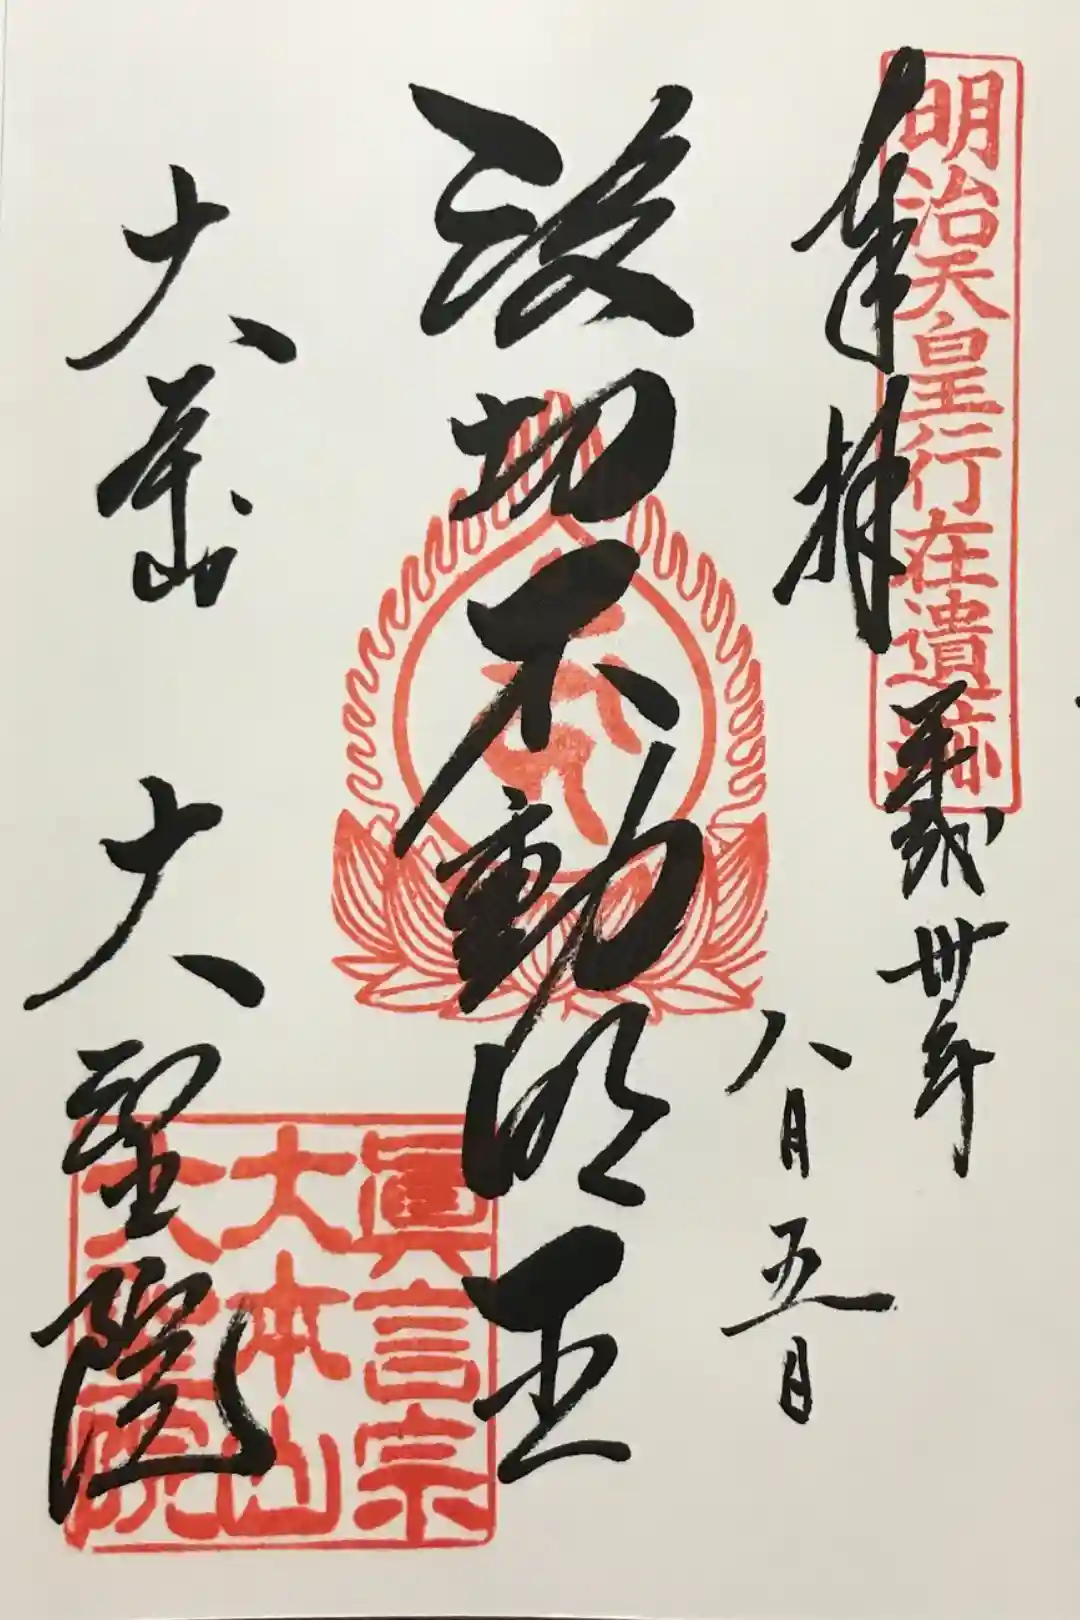 明治天皇行在遺跡
奉拝
平成卅年
八月五日
波切不動明王
大本山
大聖院
眞言宗
大本山
大聖院